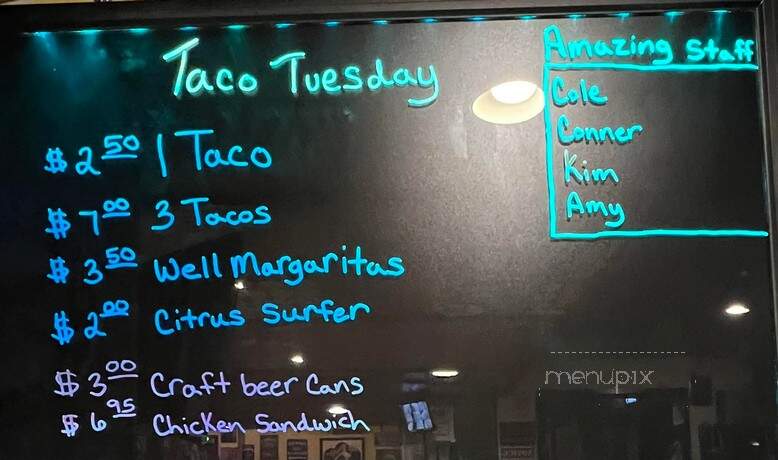 Taco Tuesday
$2.50 1 Taco
$7.00 3 Tacos
$3.50 Well Margaritas
$2.00 Citrus Surfer
$3.00 Craft beer Cans
$6.95 Chicken Sandwich
Amazing Staff
Cole
Conner
Kim
Amy
menupix